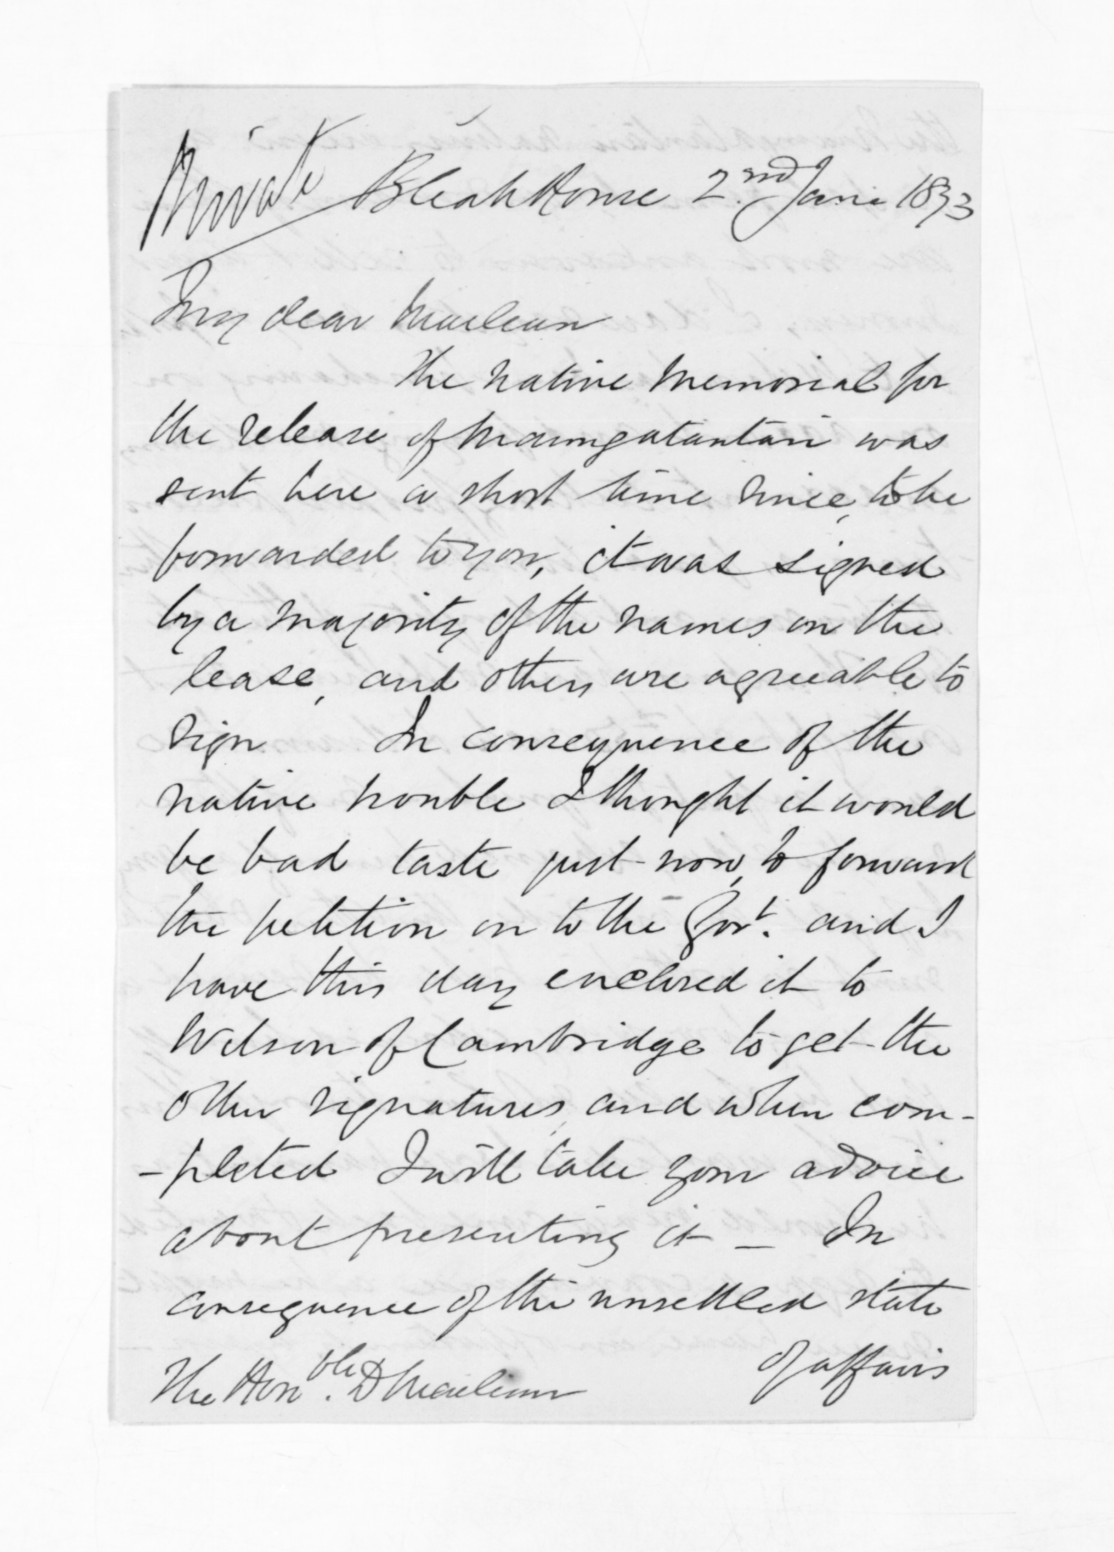 Private Bleak House 2nd June 1873
My dear Maclean
The native memorial for
the release of Maungatautari was
sent here a short time since, to be
forwarded to you, it was signed
by a majority of the names on the
lease, and others are agreeable to
sign In consequence of the
native trouble I thought it would
be bad taste just now, to forward
the petition on to the Govt. and I
have this day enclosed it to
Wilson of Cambridge to get the
other signatures, and when com-
-pleted I will take your advice
about presenting it — In
consequence of the unsettled state
of affairs
The Honble. D Maclean